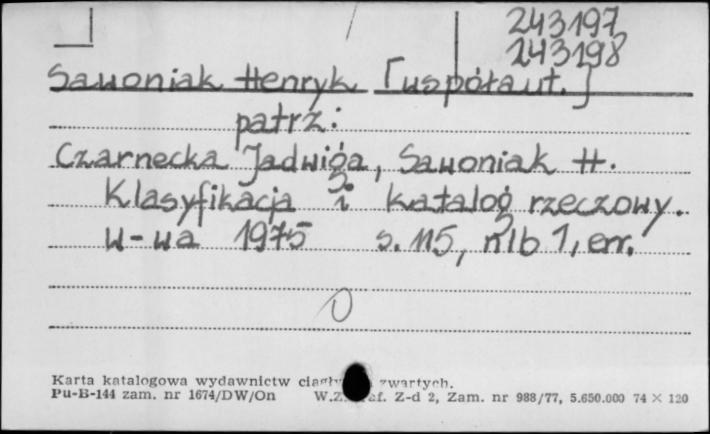 243197
243198
Sawoniak Henryk [współaut.]
patrz:
Czarnecka Jadwiga, Sawoniak H.
Klasyfikacja i katalog rzeczowy.
W-wa 1975 s. 115, nlb 1, err.
Karta katalogowa wydawnictw zwartych.
Pu-B-144 zam. nr 1674/DW/On W.Z. Z-d 2, Zam. nr 988/77, 5.650.000 74 × 120